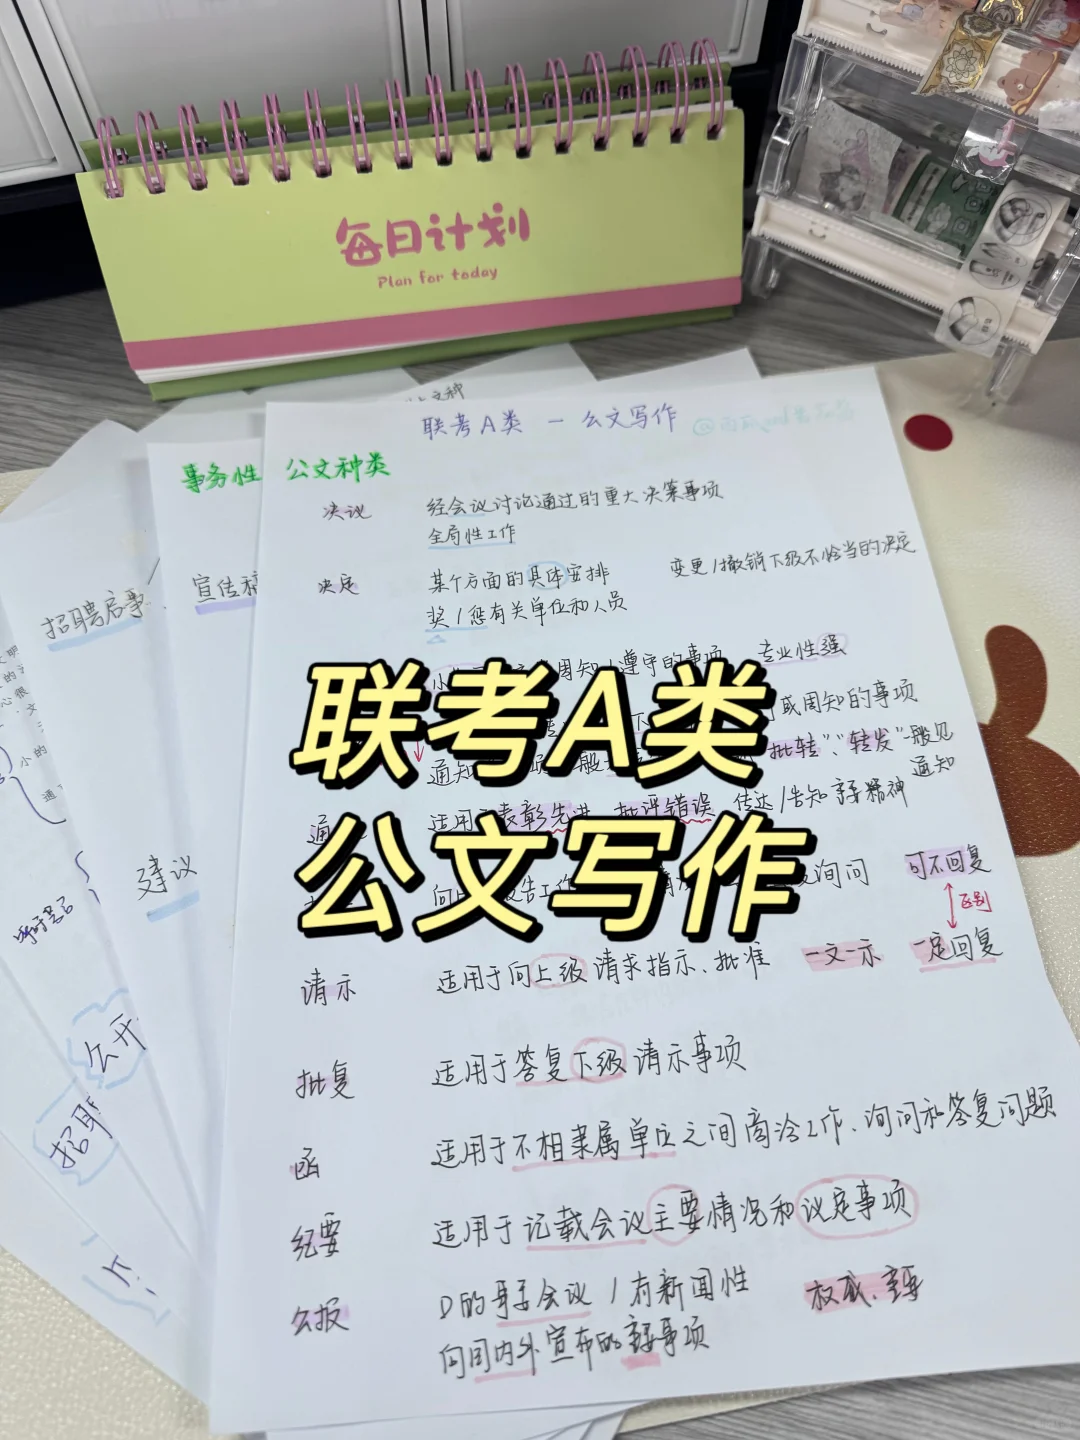 每日计划
Plan for today
联考A类 - 公文写作
事务性
公文种类
决议 经会议讨论通过的重大决策事项
全局性工作
决定 某个方面的具体安排 变更/撤销下级不恰当的决定
奖/惩有关单位和人员
周知/遵守的事项 专业性强
或周知的事项
通知 "批转"、"转发"一般见通知
适用于表彰先进、批评错误 传达/告知 精神
询问 可不回复
区别
请示 适用于向上级请求指示、批准 一文一示 一定回复
批复 适用于答复下级请示事项
函 适用于不相隶属单位之间商洽工作、询问和答复问题
纪要 适用于记载会议主要情况和议定事项
公报 D的 会议/有新闻性 权威、
向国内外宣布的 事项
宣传稿
招聘启事
建议
公开
招聘
联考A类
公文写作